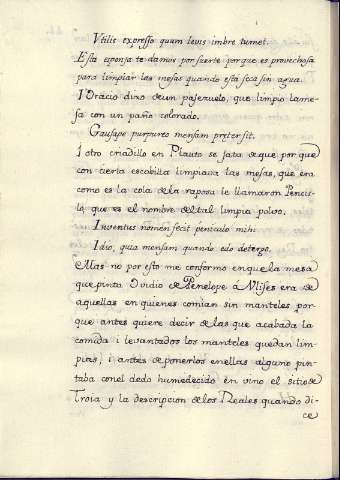 Vtilis expresso quam leuis imbre tumet.
Esta esponja te damos por suerte porque es prouechosa
para limpiar las mesas quando esta seca sin agua.
I Oracio dixo de un pajezuelo, que limpio la me-
sa con un paño colorado.
Gausape purpureo mensam pretersit.
I otro criadillo en Plauto se jata de que por que
con cierta escobilla limpiaua las mesas, que era
como es la cola de la raposa le llamaron Penicu-
lo, que es el nombre de tal limpia poluo.
Inuentus nomen fecit peniculo mihi
Ideo, quia mensam quando edo detergo.
Mas no por esto me conformo en que la mesa
que pinta Ouidio de Penelope a Vlises era de
aquellas en quienes comian sin manteles por
que antes quiere decir de las que acabada la
comida i leuantados los manteles quedan lim-
pias, i antes de ponerlos en ellas alguno pin-
taba con el dedo humedecido en vino el sitio de
Troia y la descripcion de los Reales quando di-
ce